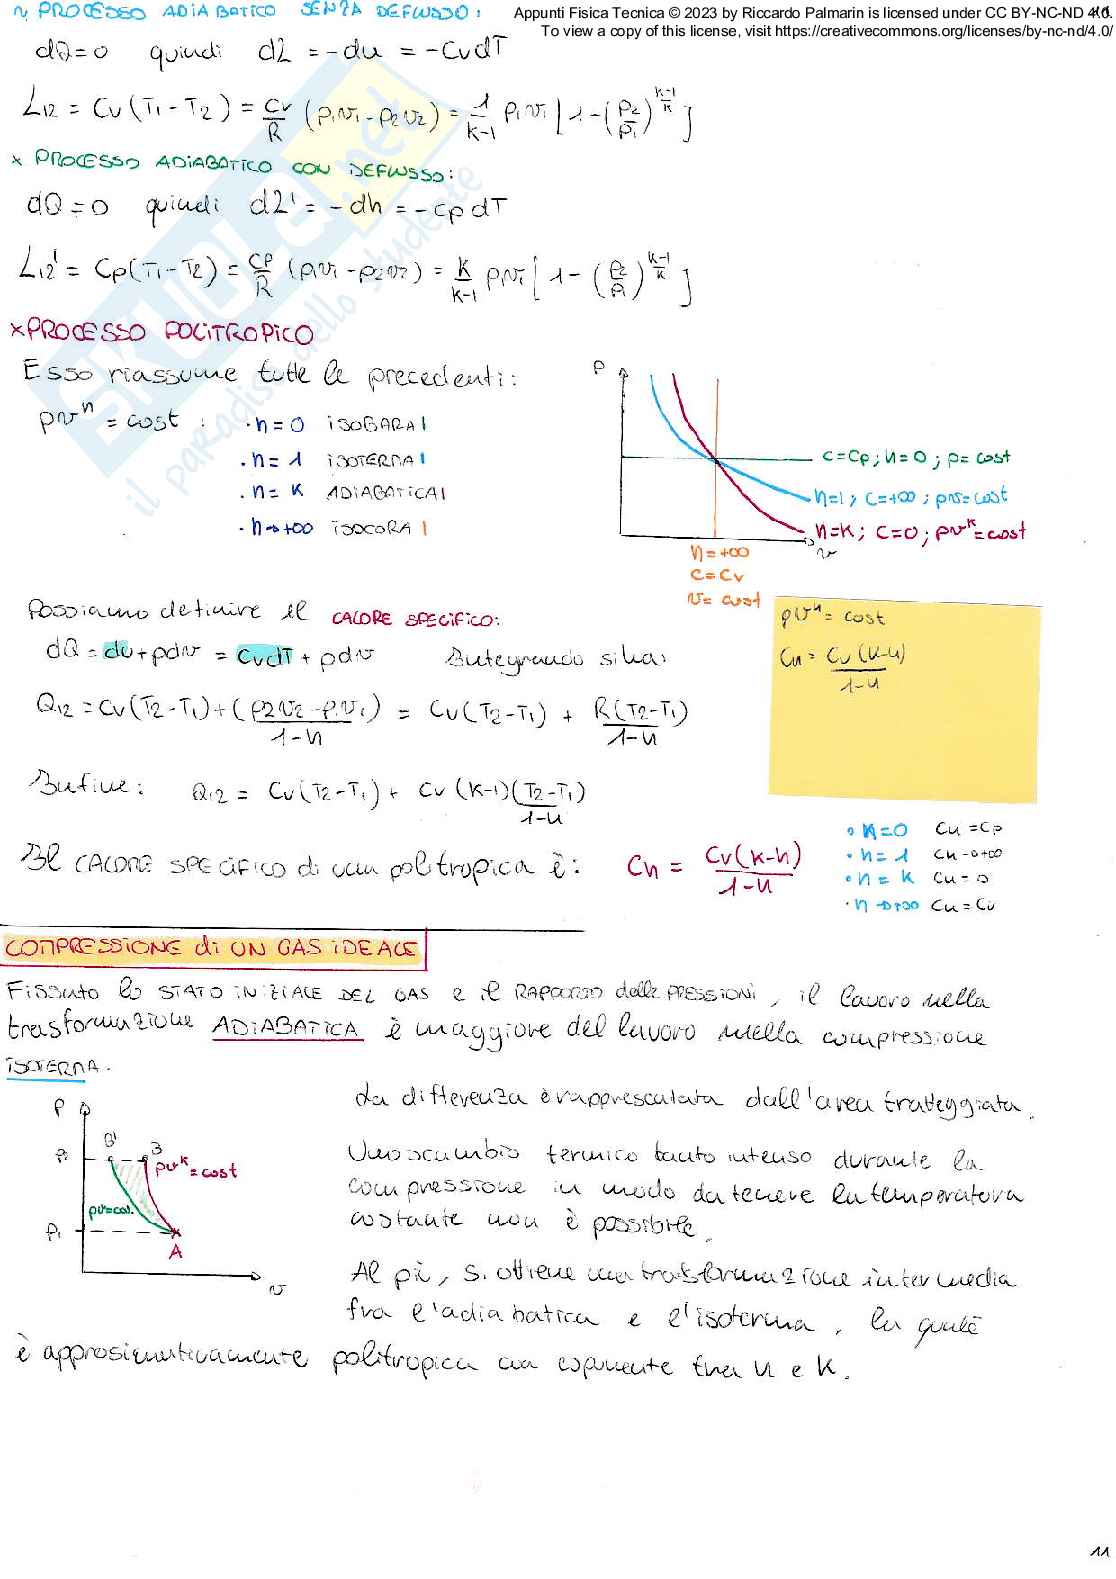 ~ PROCESSO ADIABATICO SENZA DEFLUSSO:
Appunti Fisica Tecnica © 2023 by Riccardo Palmarin is licensed under CC BY-NC-ND 4.0.
To view a copy of this license, visit https://creativecommons.org/licenses/by-nc-nd/4.0/
dQ=0 quindi dL = -du = -CvdT
L12 = Cv(T1-T2) = Cv/R (p1v1-p2v2) = 1/(k-1) p1v1 [1-(p2/p1)^((k-1)/k)]
× PROCESSO ADIABATICO CON DEFLUSSO:
dQ=0 quindi dL' = -dh = -cp dT
L12' = Cp(T1-T2) = Cp/R (p1v1-p2v2) = k/(k-1) p1v1 [1-(p2/p1)^((k-1)/k)]
× PROCESSO POLITROPICO
Esso riassume tutte le precedenti:
pv^n = cost : · n=0 ISOBARA!
· n=1 ISOTERMA!
· n=k ADIABATICA!
· n→+∞ ISOCORA!
P
c=cp; n=0; p=cost
n=1; c=+∞; pv=cost
n=k; c=0; pv^k=cost
v
n=+∞
c=cv
v=cost
Possiamo definire il CALORE SPECIFICO:
dQ = du+pdv = CvdT + pdv Integrando si ha:
Q12 = Cv(T2-T1)+(p2v2-p1v1)/(1-n) = Cv(T2-T1) + R(T2-T1)/(1-n)
Infine: Q12 = Cv(T2-T1)+ Cv(k-1)(T2-T1)/(1-n)
pv^n = cost
Cn = Cv(k-n)/(1-n)
Il CALORE SPECIFICO di una politropica è: Cn = Cv(k-n)/(1-n)
· n=0 Cn=Cp
· n=1 Cn→+∞
· n=k Cn=0
· n→+∞ Cn=Cv
COMPRESSIONE di UN GAS IDEALE
Fissato lo STATO INIZIALE DEL GAS e il RAPPORTO delle PRESSIONI, il lavoro nella
trasformazione ADIABATICA è maggiore del lavoro nella compressione
ISOTERMA.
La differenza è rappresentata dall'area tratteggiata.
Uno scambio termico tanto intenso durante la
compressione in modo da tenere la temperatura
costante non è possibile.
Al più, si ottiene una trasformazione intermedia
fra l'adiabatica e l'isoterma, la quale
è approssimativamente politropica con esponente tra n e k.
P
B'
B
pv^k=cost
pv=cost.
P1
A
v
SKUOLA.net
il paradiso dello studente
11